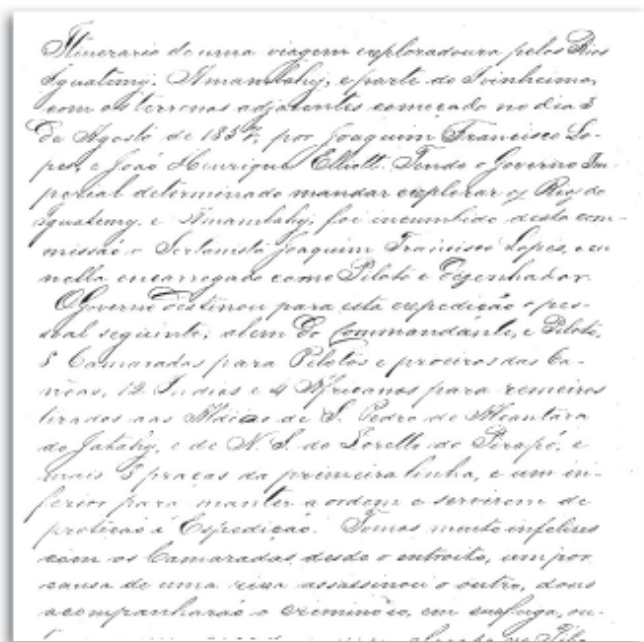 Itinerario de uma viagem exploradoura pelos Rios
Iguatemy, Amambahy, e parte do Ivinheima,
com os terrenos adjacentes começado no dia 3
de Agosto de 1857, por Joaquim Francisco Lo-
pes, e João Henrique Elliott. Tendo o Governo Im-
perial determinado mandar explorar os Rios do
Iguatemy e Amambahy, foi incumbido desta com-
missão o Sertanista Joaquim Francisco Lopes, e eu
nella encarregado como Piloto e Dezenhador.
O Governo destinou para esta expedição o pes-
soal seguinte, alem do Commandante, e Piloto,
5 Camaradas para Pilotos e proeiros das Ca-
nôas, 12 Indios e 4 Africanos para remeiros
tirados nas Aldêas de S. Pedro de Alcantara
do Jatahy, e de N. S. do Loretto do Pirapó, e
mais 8 praças da primeira linha, e um in-
ferior para manter a ordem e servirem de
proteção á Expedição. Fomos muito infelizes
com os Camaradas desde o entroito, um por
causa de uma rixa assassinou o outro, dous
acompanharão o criminoso, em sua fuga, ou-